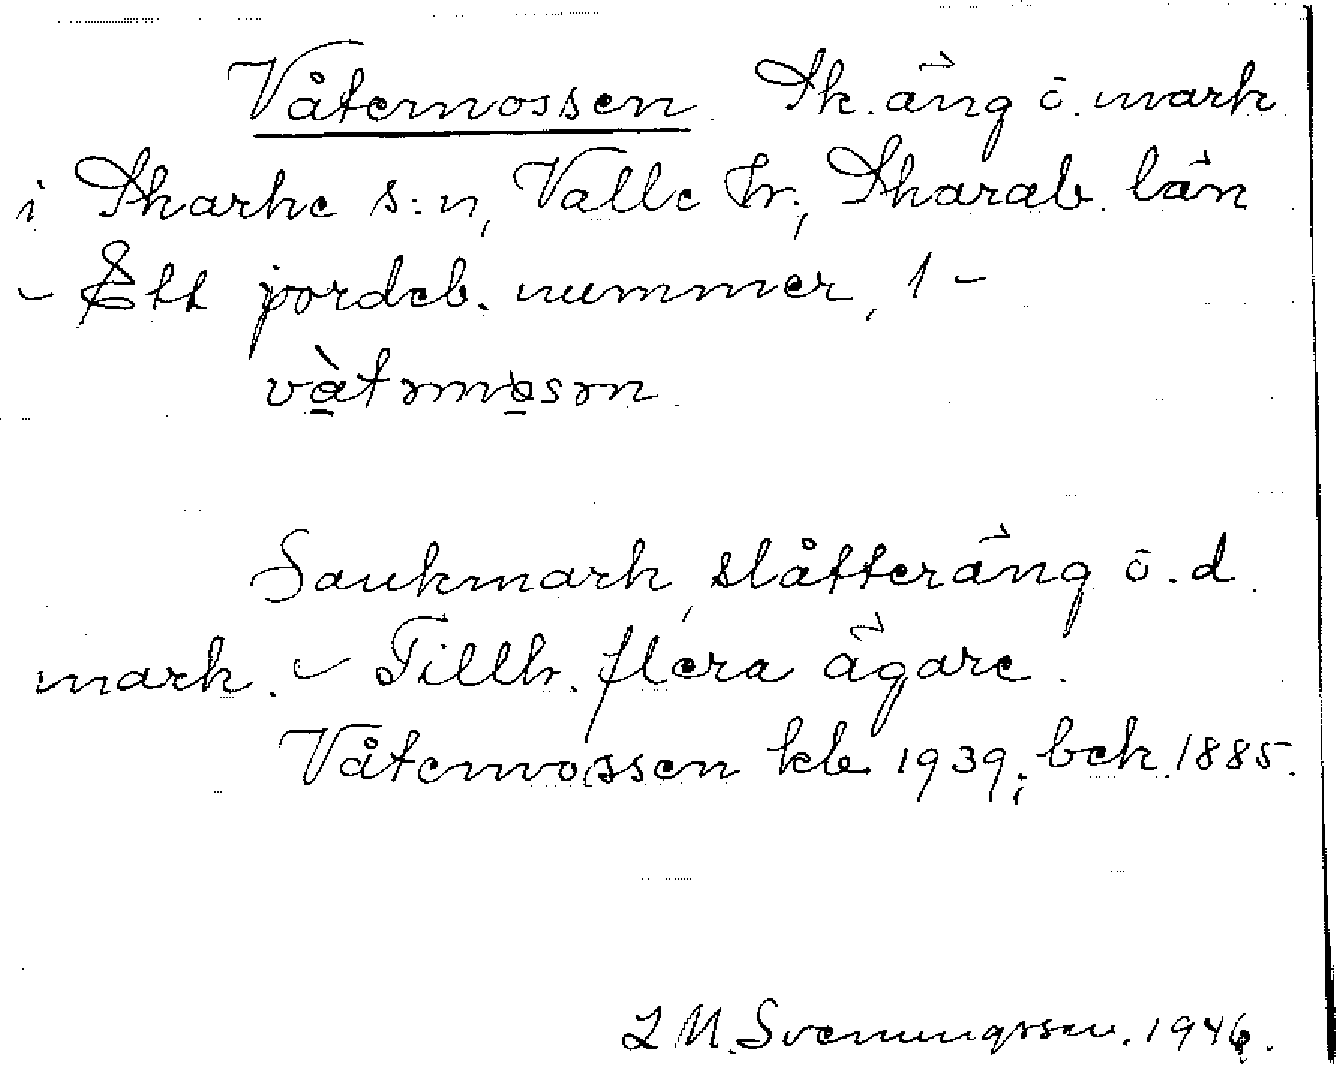 Våtemossen. Sk. äng ö. mark
i Skarke s:n, Valle hr., Skarab. län
- Ett jordeb. nummer, 1 -
vàtəmåsən
Sankmark, slåtteräng ö. d.
mark. - Tillh. flera ägare.
Våtemossen kb 1939; bek. 1885.
L M. Svenungsson. 1946.